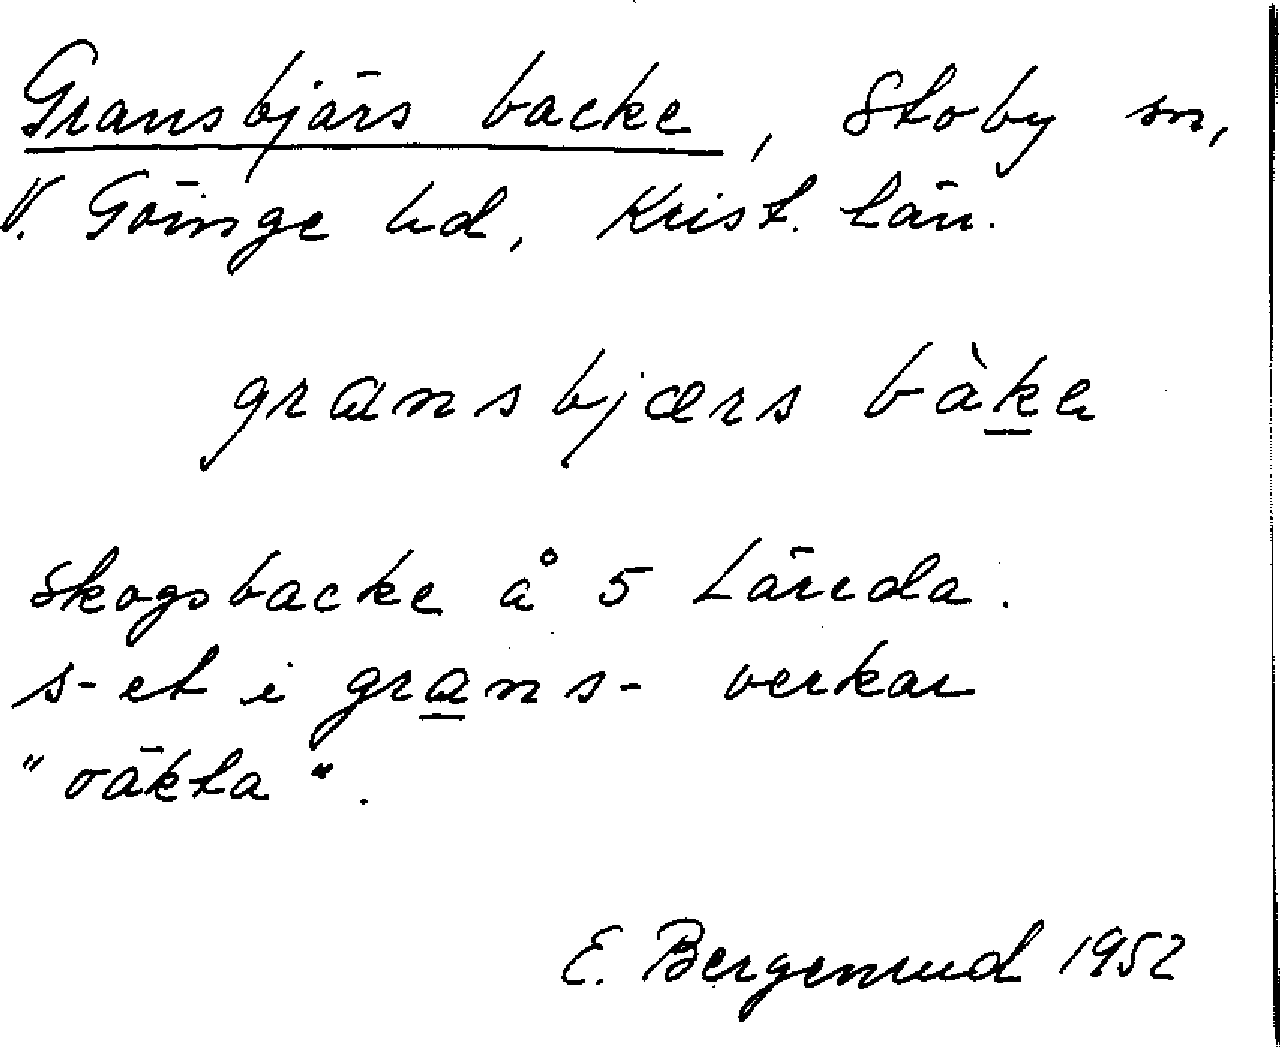 Gransbjärs backe, Stoby sn,
V. Göinge hd, Krist. län.
gransbjærs bàke
Skogsbacke å 5 Läreda.
s-et i grans- verkar
"oäkta".
E. Bergenrud 1952